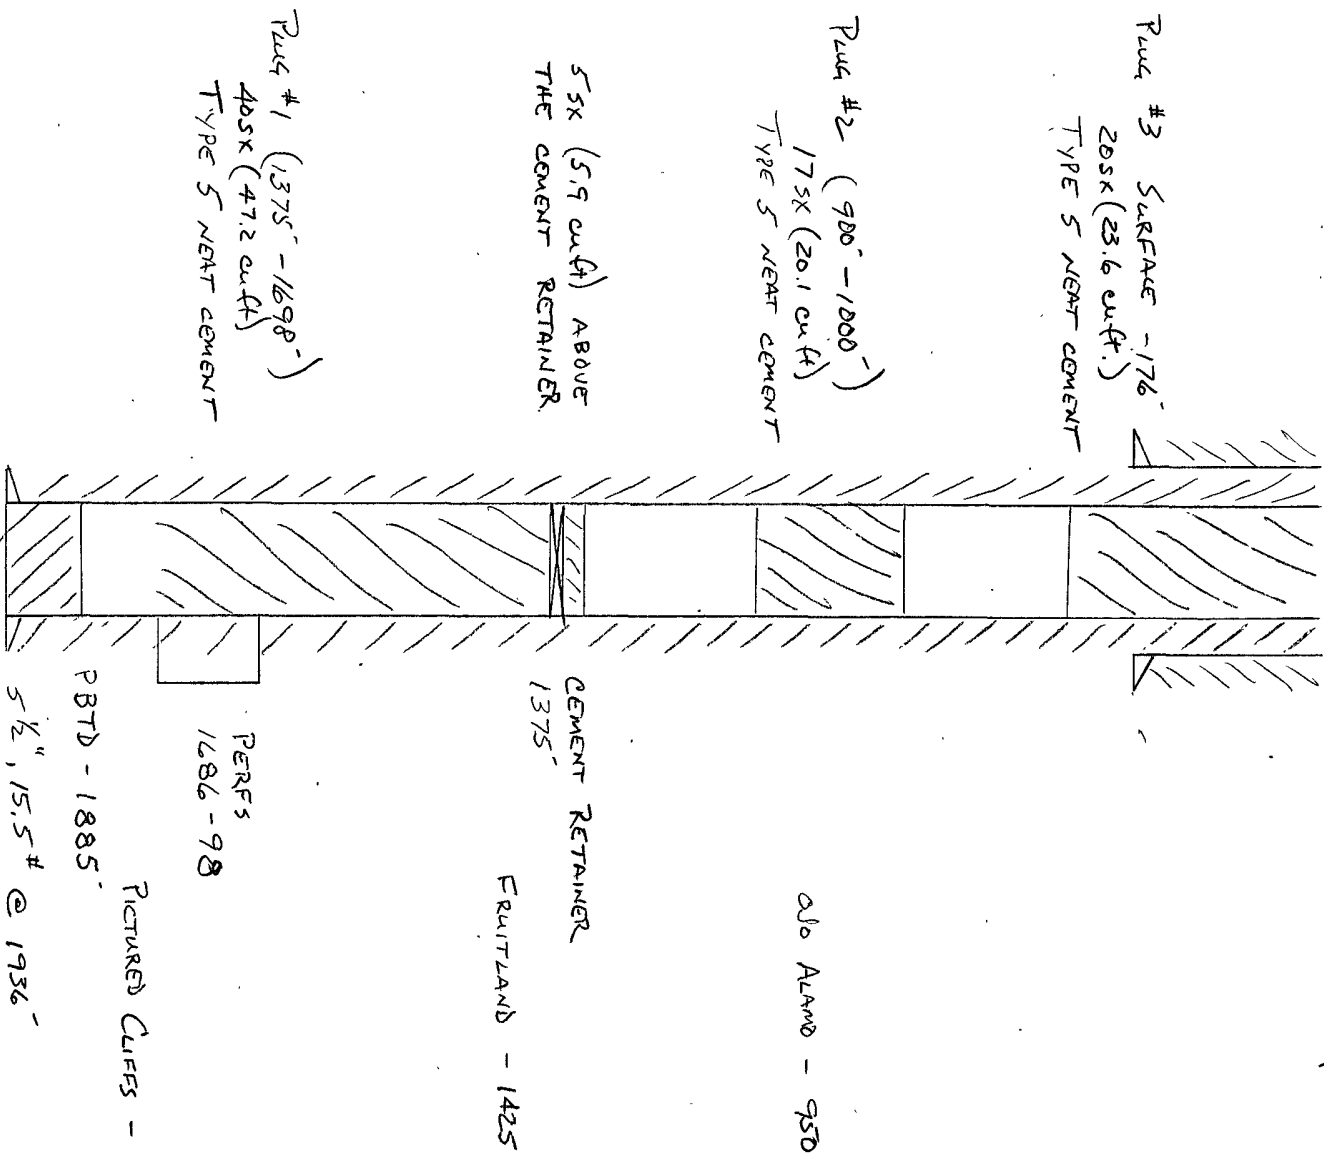 PLUG #3 SURFACE - 176'
20SX (23.6 cuft.)
TYPE 5 NEAT CEMENT
PLUG #2 (900' - 1000')
17SX (20.1 cuft)
TYPE 5 NEAT CEMENT
5SX (5.9 cuft) ABOVE
THE CEMENT RETAINER
PLUG #1 (1375' - 1698')
40SX (47.2 cuft)
TYPE 5 NEAT CEMENT
OJO ALAMO - 950
CEMENT RETAINER
1375'
FRUITLAND - 1425
PERFS
1686-98
PICTURED CLIFFS -
PBTD - 1885'
5 1/2", 15.5# @ 1936'